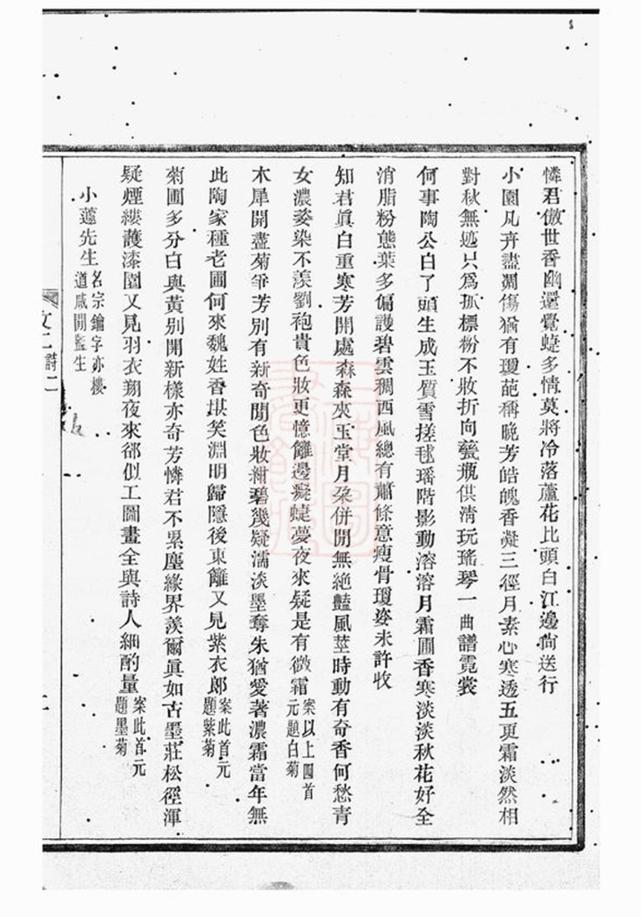 憐君傲世香幽還覺蜨多情莫將冷落蘆花比頭白江邊尙送行
小園凡卉盡凋傷猶有瓊葩稱晚芳皓魄香凝三徑月素心寒透五更霜淡然相
對秋無迹只爲孤標粉不妝折向甆瓶供清玩瑤琴一曲譜霓裳
何事陶公白了頭生成玉質雪搓毬瑤階影動溶溶月霜圃香寒淡淡秋花好全
消脂粉態葉多偏護碧雲稠西風總有蕭條意瘦骨瓊姿未許收
知君眞白重寒芳開處森森夾玉堂月朶併開無絶豔風莖時動有奇香何愁青
女濃姿染不羨劉袍貴色妝更憶籬邊癡蜨夢夜來疑是有微霜案以上四首元題白菊
木犀開盡菊爭芳別有新奇開色妝紺碧幾疑濡淡墨奪朱猶愛著濃霜當年無
此陶家種老圃何來魏姓香堪笑淵明歸隱後東籬又見紫衣郞案此首元題紫菊
菊圃多分白與黃別開新樣亦奇芳憐君不累塵緣界羨爾眞如古墨莊松徑渾
疑煙縷護漆園又見羽衣翔夜來郤似工圖畫全與詩人細酌量案此首元題墨菊
小蘧先生名宗鑰字亦樓道咸間監生
文二 詩二